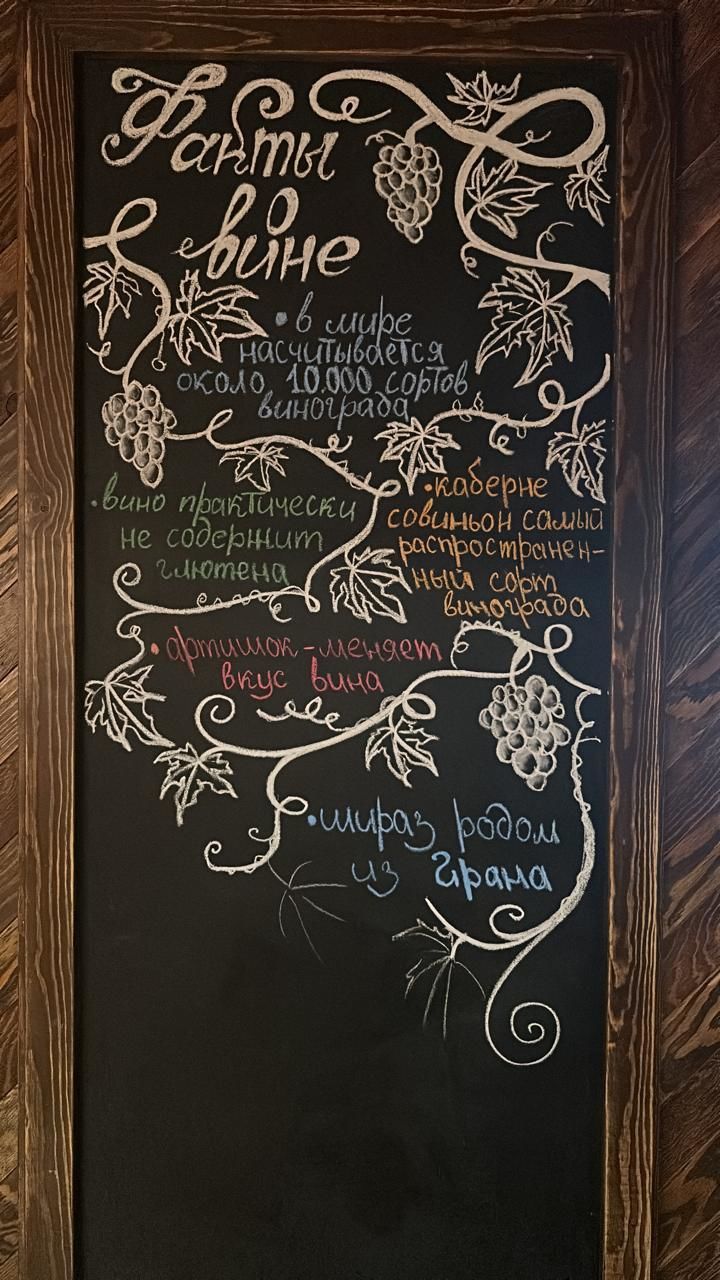 Факты
о
вине
• в мире
насчитывается
около 10.000 сортов
винограда
• вино практически
не содержит
глютена
• каберне
совиньон самый
распространен-
ный сорт
винограда
• артишок - меняет
вкус вина
• шираз родом
из Ирана